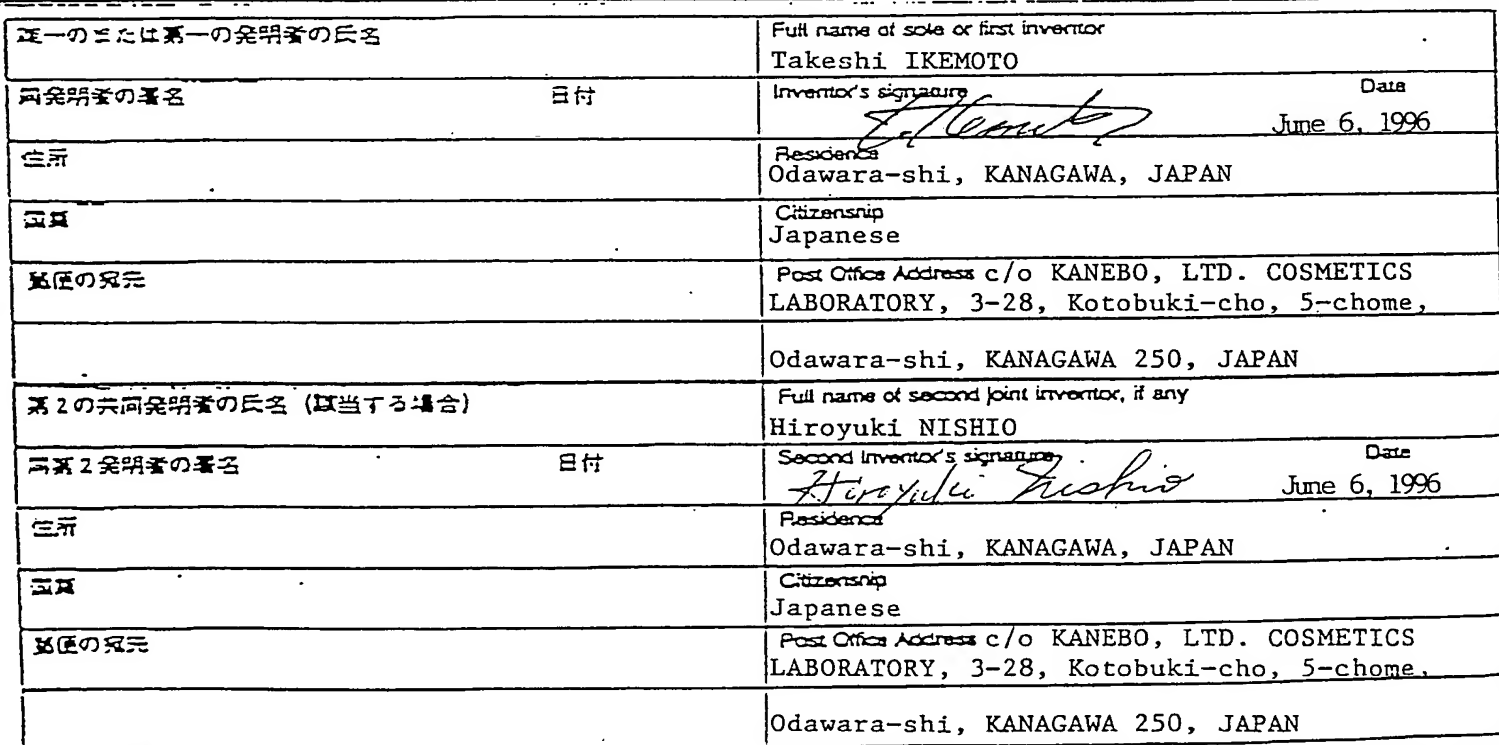 唯一のまたは第一の発明者の氏名
Full name of sole or first inventor
Takeshi IKEMOTO
同発明者の署名 日付
Inventor's signature Date
June 6, 1996
住所
Residence
Odawara-shi, KANAGAWA, JAPAN
国籍
Citizenship
Japanese
郵便の宛先
Post Office Address c/o KANEBO, LTD. COSMETICS
LABORATORY, 3-28, Kotobuki-cho, 5-chome,
Odawara-shi, KANAGAWA 250, JAPAN
第2の共同発明者の氏名（該当する場合）
Full name of second joint inventor, if any
Hiroyuki NISHIO
同第2発明者の署名 日付
Second Inventor's signature Date
Hiroyuki Nishio June 6, 1996
住所
Residence
Odawara-shi, KANAGAWA, JAPAN
国籍
Citizenship
Japanese
郵便の宛先
Post Office Address c/o KANEBO, LTD. COSMETICS
LABORATORY, 3-28, Kotobuki-cho, 5-chome,
Odawara-shi, KANAGAWA 250, JAPAN